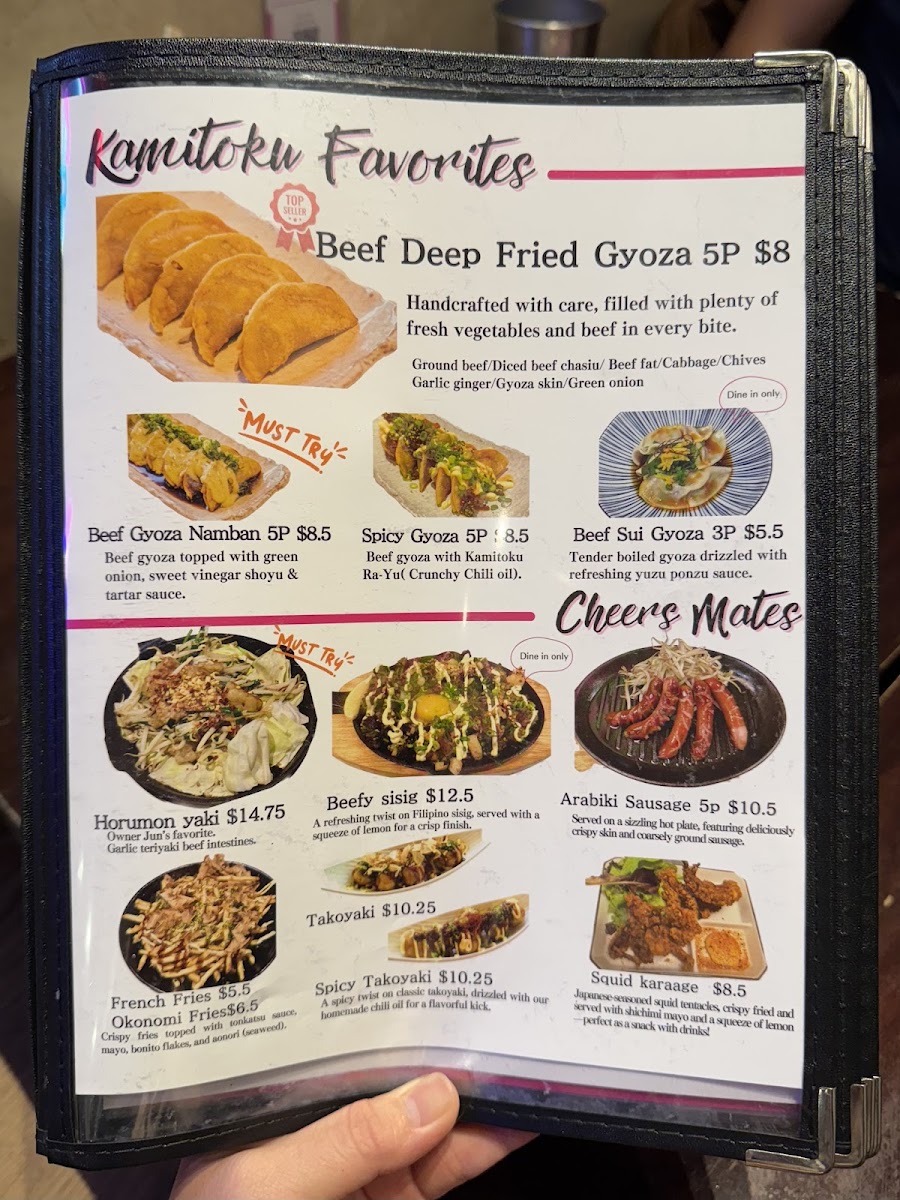 Kamitoku Favorites
TOP
SELLER
Beef Deep Fried Gyoza 5P $8
Handcrafted with care, filled with plenty of
fresh vegetables and beef in every bite.
Ground beef/Diced beef chasiu/ Beef fat/Cabbage/Chives
Garlic ginger/Gyoza skin/Green onion
Dine in only
MUST TRY
Beef Gyoza Namban 5P $8.5
Beef gyoza topped with green
onion, sweet vinegar shoyu &
tartar sauce.
Spicy Gyoza 5P $8.5
Beef gyoza with Kamitoku
Ra-Yu( Crunchy Chili oil).
Beef Sui Gyoza 3P $5.5
Tender boiled gyoza drizzled with
refreshing yuzu ponzu sauce.
Cheers Mates
MUST TRY
Dine in only
Horumon yaki $14.75
Owner Jun's favorite.
Garlic teriyaki beef intestines.
Beefy sisig $12.5
A refreshing twist on Filipino sisig, served with a
squeeze of lemon for a crisp finish.
Arabiki Sausage 5p $10.5
Served on a sizzling hot plate, featuring deliciously
crispy skin and coarsely ground sausage.
Takoyaki $10.25
French Fries $5.5
Okonomi Fries$6.5
Crispy fries topped with tonkatsu sauce,
mayo, bonito flakes, and aonori (seaweed).
Spicy Takoyaki $10.25
A spicy twist on classic takoyaki, drizzled with our
homemade chili oil for a flavorful kick.
Squid karaage $8.5
Japanese-seasoned squid tentacles, crispy fried and
served with shichimi mayo and a squeeze of lemon
—perfect as a snack with drinks!